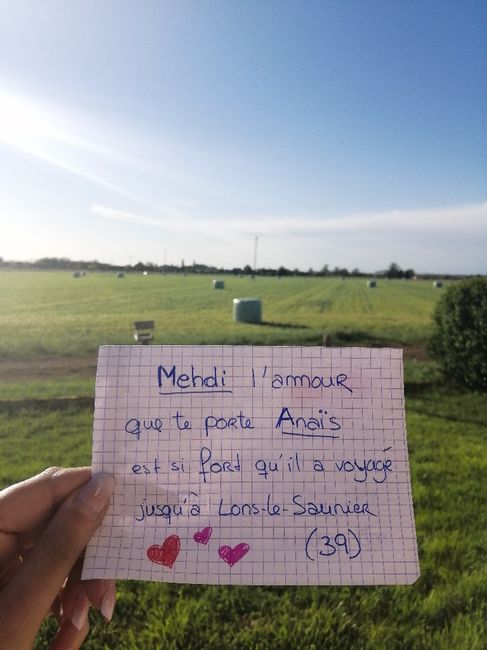 Mehdi l'amour
que te porte Anaïs
est si fort qu'il a voyagé
jusqu'à Lons-le-Saunier
(39)